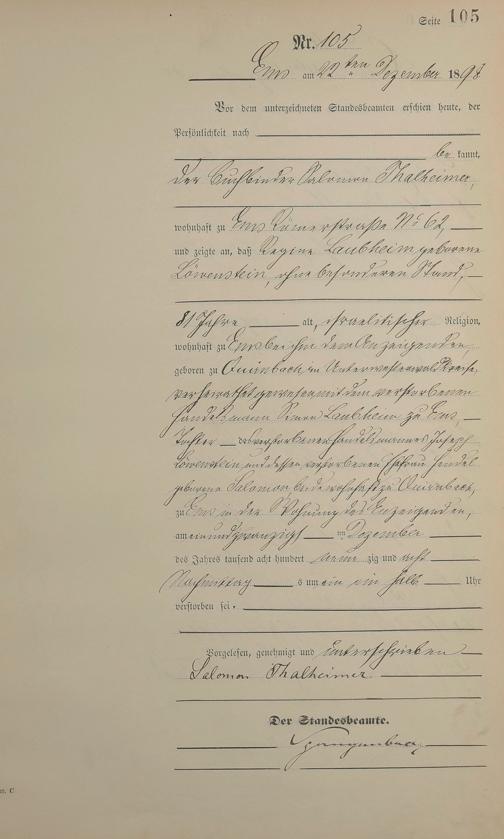 Seite 105
Nr. 105
Ems am 22ten Dezember 1898
Vor dem unterzeichneten Standesbeamten erschien heute, der
Persönlichkeit nach
be kannt,
der Buchbinder Salomon Thalheimer,
wohnhaft zu Ems Römerstraße No 62,
und zeigte an, daß Regine Laubheim geborene
Löwenstein, ohne besonderen Stand,
81 Jahre alt, israelitischer Religion,
wohnhaft zu Ems bei ihm dem Anzeigenden,
geboren zu Quirnbach im Unterwesterwald Kreise,
verheirathet gewesen mit dem verstorbenen
Handelsmann Laubheim zu Ems,
Tochter des verstorbenen Handelsmannes Joseph
Löwenstein und dessen verstorbenen Ehefrau Hendel
geborene Salomon beide wohnhaft zu Quirnbach,
zu Ems in der Wohnung des Anzeigenden,
am einundzwanzigsten Dezember
des Jahres tausend acht hundert neun zig und acht
Nachmittag s um ein ein halb Uhr
verstorben sei.
Vorgelesen, genehmigt und unterschrieben
Salomon Thalheimer
Der Standesbeamte.
Spangenberg